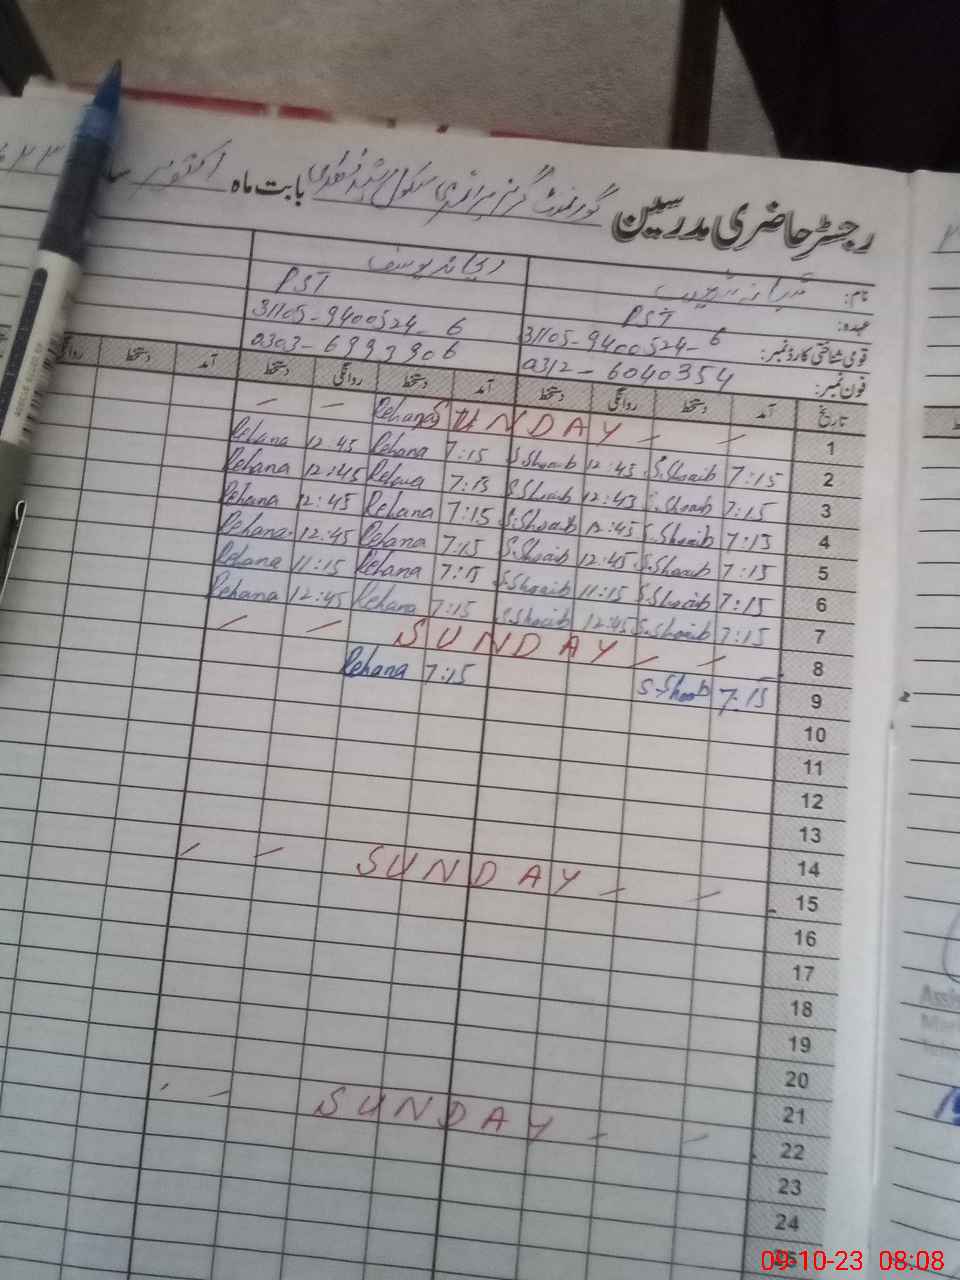 رجسٹر حاضری مدرسین گورنمنٹ گرلز پرائمری سکول بابت ماہ اکتوبر
نام: شبانہ شعیب ریحانہ یوسف
عہدہ: PST PST
قومی شناختی کارڈ نمبر: 31105-9400524-6 31105-9400524-6
فون نمبر: 0312-6040354 0303-6993906
تاریخ آمد دستخط روانگی دستخط آمد دستخط روانگی دستخط آمد دستخط
Rehana SUNDAY 1
Rehana 12:45 Rehana 7:15 S.Shoaib 12:45 S.Shoaib 7:15 2
Rehana 12:45 Rehana 7:15 S.Shoaib 12:45 S.Shoaib 7:15 3
Rehana 12:45 Rehana 7:15 S.Shoaib 12:45 S.Shoaib 7:15 4
Rehana 12:45 Rehana 7:15 S.Shoaib 12:45 S.Shoaib 7:15 5
Rehana 11:15 Rehana 7:15 S.Shoaib 11:15 S.Shoaib 7:15 6
Rehana 12:45 Rehana 7:15 S.Shoaib 12:45 S.Shoaib 7:15 7
SUNDAY 8
Rehana 7:15 S.Shoaib 7:15 9
10
11
12
13
14
SUNDAY 15
16
17
18
19
20
21
SUNDAY 22
23
24
25
09-10-23 08:08